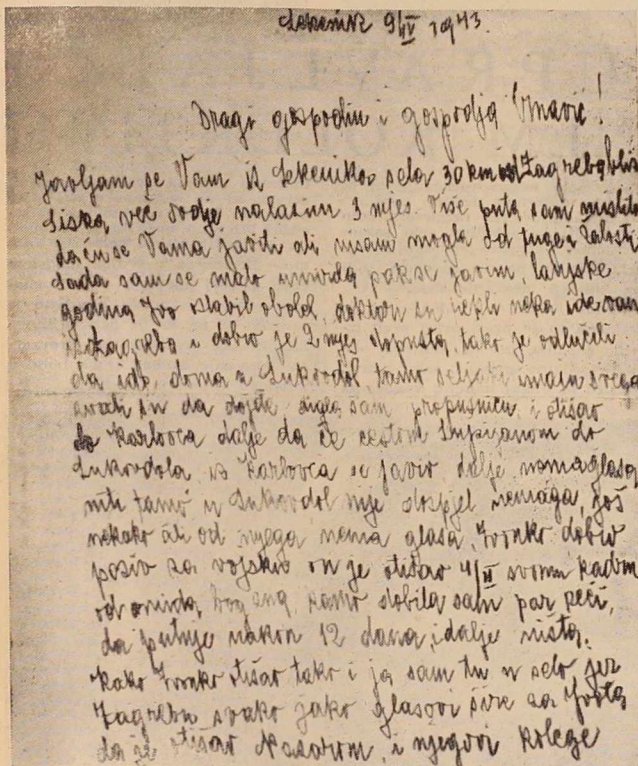 Lekenik 9/IV 1943.
Dragi gospodin i gospodja Vnavić!
Javljam se Vam iz Lekenika sela 30 km od Zagreba blis
Siska, već ovdje nalazim 3 mjes. Više puta sam mislila
da ću se Vama javiti ali nisam mogla od tuge i žalosti
Sada sam se malo pak se javim, lanjske
godina Ivo slabil obolel, doktori su rekli neka ide van
iz Zagreba i dobio je 2 mjes dopusta, tako je odlučili
da ide doma u Lukovdol, tamo seljaki imaju svega
su da dojde sam propusnicu i otišao
do Karlovca dalje da će cestom Lujzijanom do
Lukovdola iz Karlovca se javio dalje nema glasa
niti tamo u Lukovdol nije dospjel nema ga, još
nekako ali od njega nema glasa, Zvonko dobio
poziv za vojsku on je otišao 4/II svomu kadru
od onuda, bog zna, kamo dobila sam par reči,
da putuje nakon 12 dana, i dalje ništa.
Kako Zvonko otišao tako i ja sam tu u selo jer
Zagrebu svako jako glasovi šire za Ivota
da je otišao Nazorom, i njegovi kolege